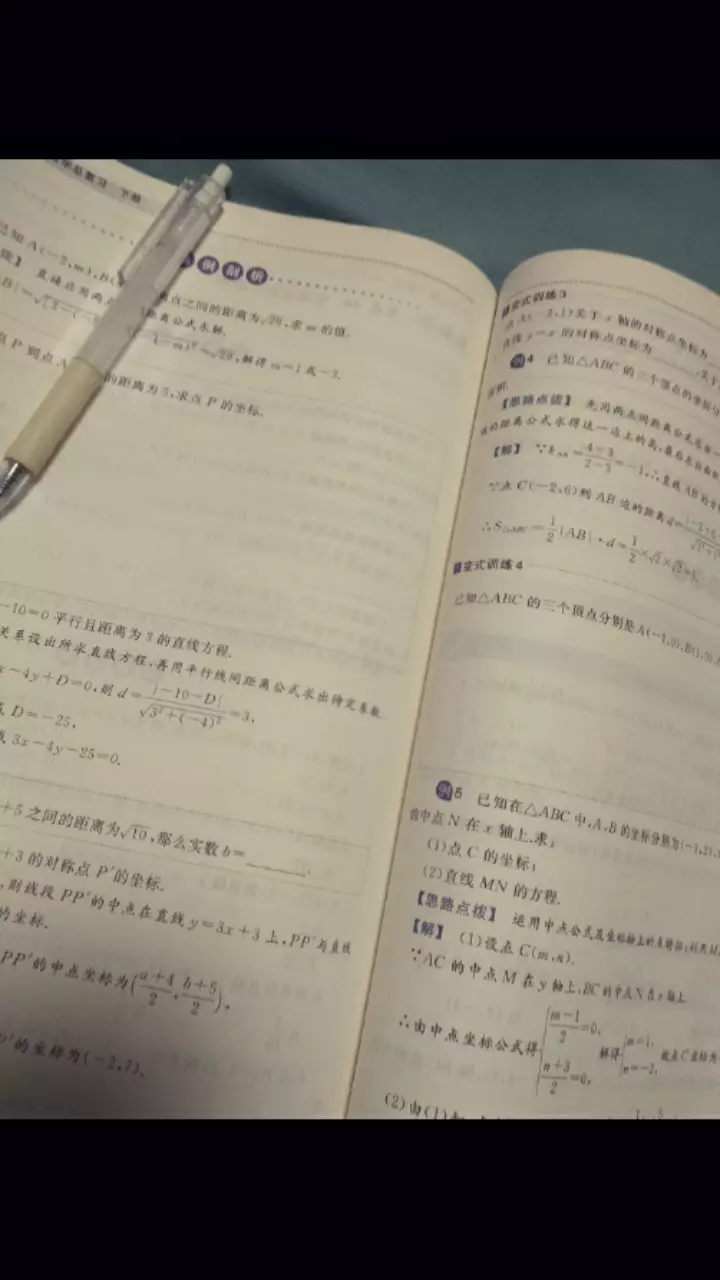 学总复习 下册
例剖析
已知A(-2,m),B( 两点之间的距离为√29,求m的值.
拨】 直接应用两 距离公式求解.
B|=√[3-( -m)²=√29,解得m=1或
点P到点A 的距离为5,求点P的坐标.
-10=0平行且距离为3的直线方程.
关系设出所求直线方程,再用平行线间距离公式求出待定系数.
x-4y+D=0,则d=|-10-D|/√3²+(-4)²=3,
D=-25,
3x-4y-25=0.
+5之间的距离为√10,那么实数b=______.
+3的对称点P′的坐标.
,则线段PP′的中点在直线y=3x+3上,PP′与直线
的坐标.
PP′的中点坐标为(a+4/2,b+5/2),
P′的坐标为(-2,7).
变式训练3
-2,1)关于x轴的对称点坐标为
直线y=x的对称点坐标为______,关于
例4 已知△ABC的三个顶点的坐标
面积.
【思路点拨】 先用两点间距离公式
的距离公式求得这一边上的高,最后
【解】 ∵kAB=4-3/2-3=-1,∴直线AB的方
∵点C(-2,6)到AB边的距离d=
∴S△ABC=1/2|AB|·d=1/2×√2×
变式训练4
已知△ABC的三个顶点分别是A(-1,0),B(1,0),
例5 已知在△ABC中,A,B的坐标分别为(-1,2),
的中点N在x轴上,求:
(1)点C的坐标;
(2)直线MN的方程.
【思路点拨】 运用中点公式及坐标轴上的点特征;利用
【解】 (1)设点C(m,n).
∵AC的中点M在y轴上,BC的中点N在x轴上
∴由中点坐标公式得{m-1/2=0, n+3/2=0, 解得{m=1, n=-3, 故点C坐标为
(2)由(1)知